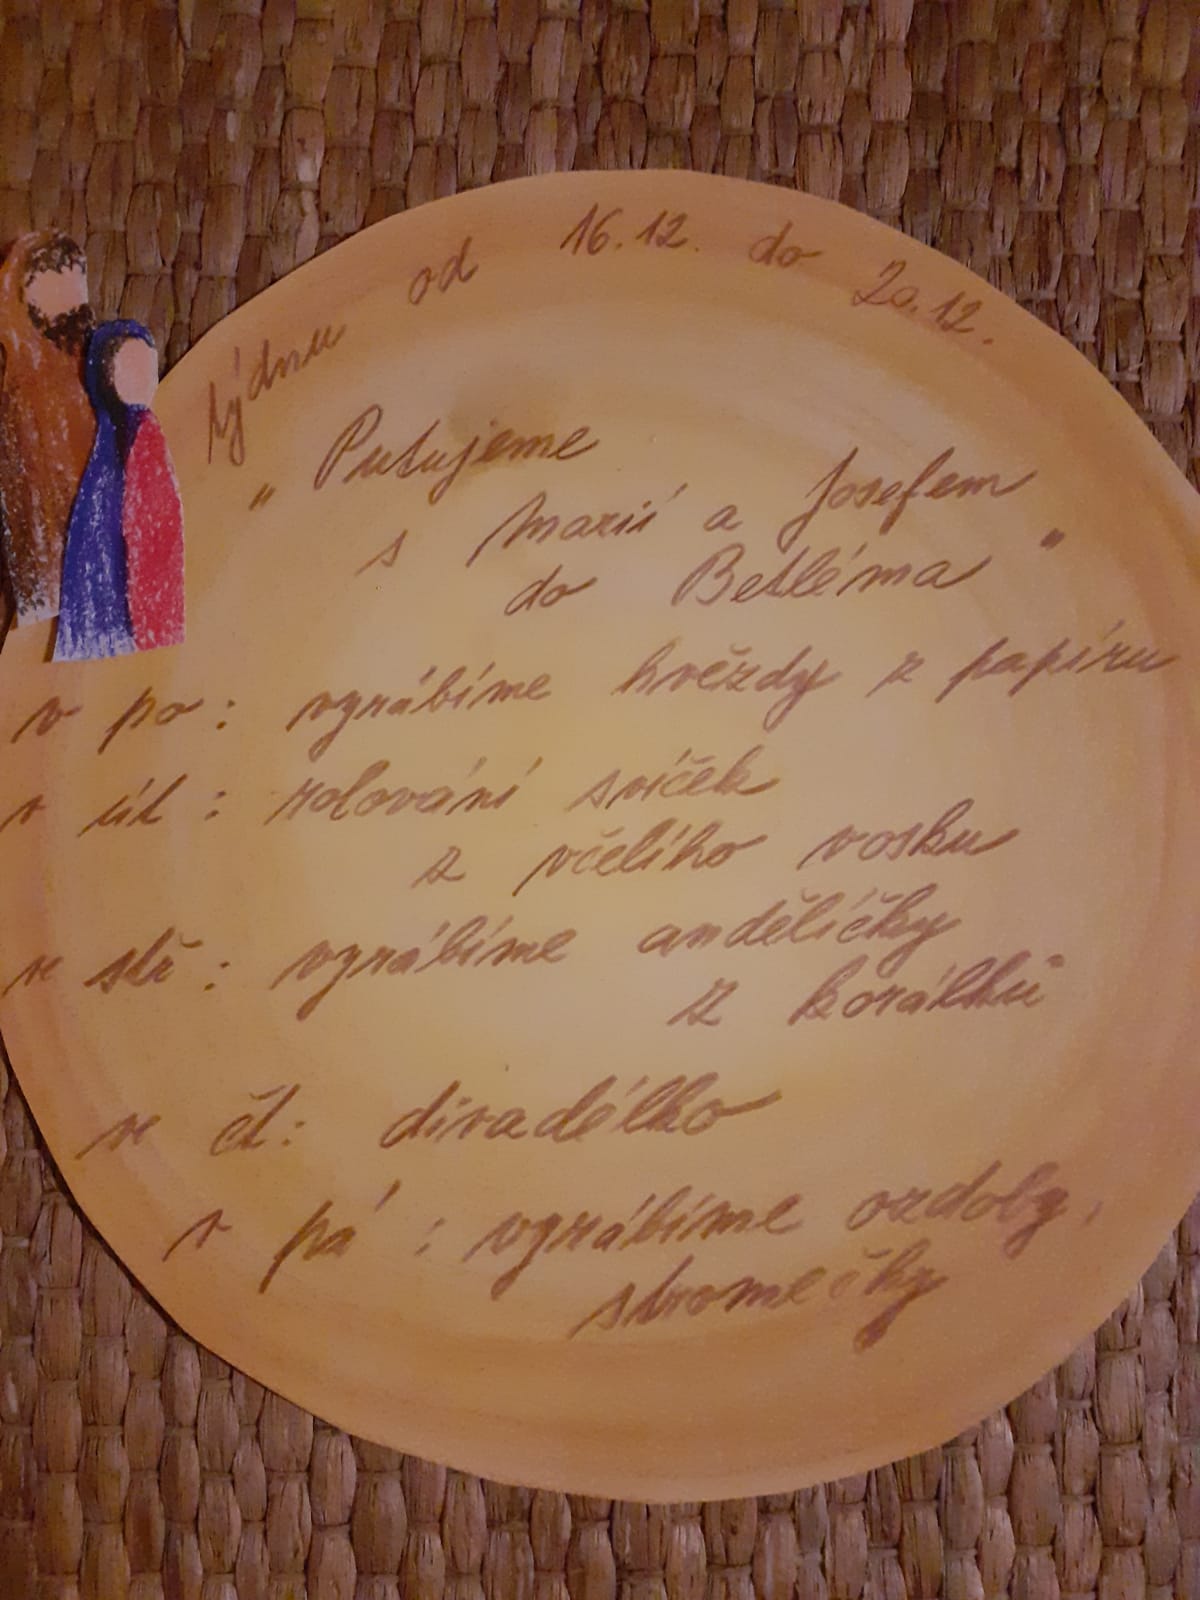 týdnu od 16.12. do 20.12.
„Putujeme
s Marií a Josefem
do Betléma"
v po: vyrábíme hvězdy z papíru
v út: rolování svíček
z včelího vosku
ve stř: vyrábíme andělíčky
z korálků
ve čt: divadélko
v pá: vyrábíme ozdoby,
stromečky